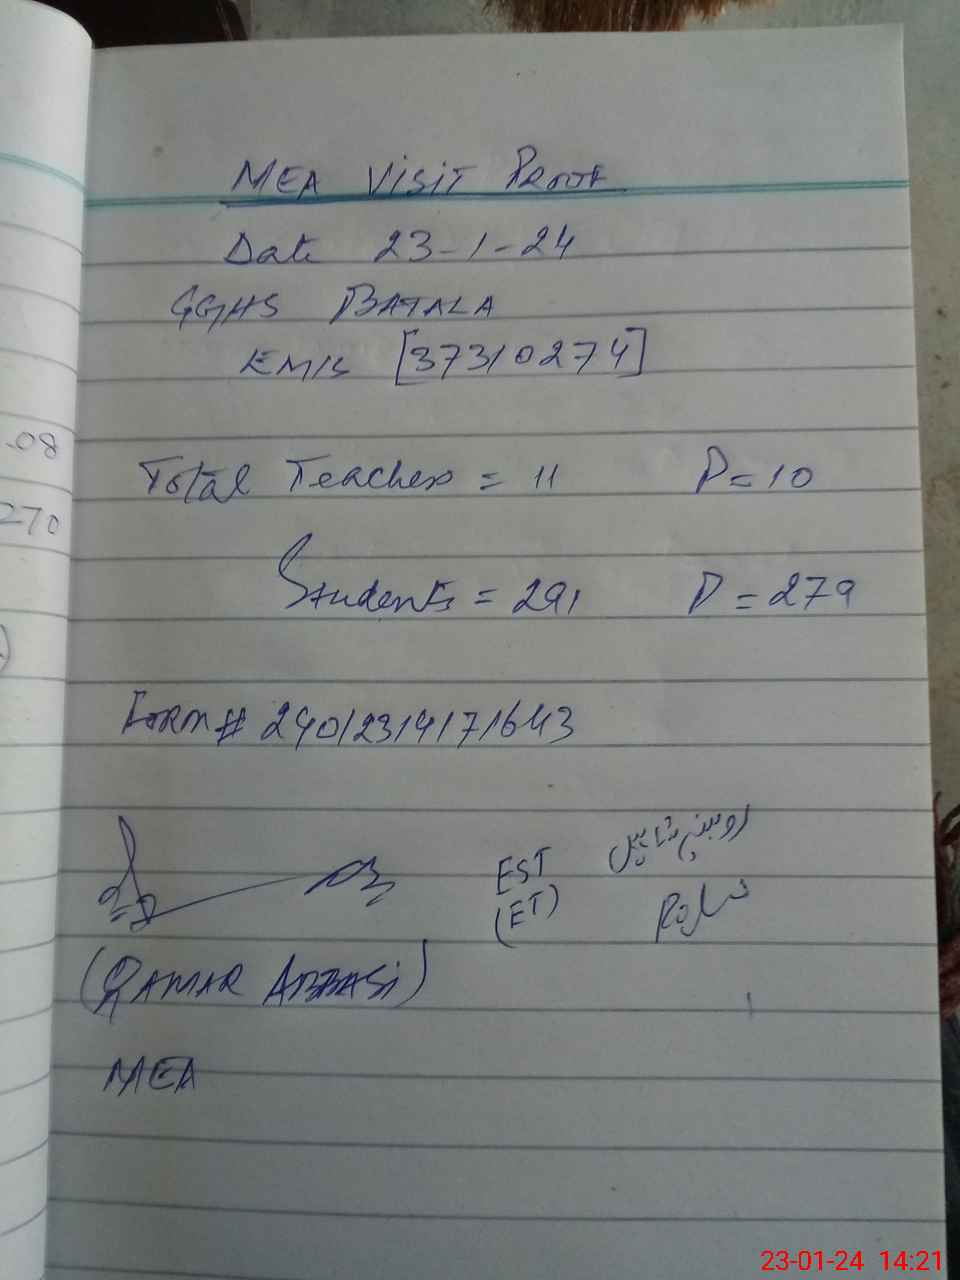 MEA Visit Proof
Date 23-1-24
GGHS BATALA
EMIS [37310274]
-08
270
Total Teachers = 11 P=10
Students = 291 P = 279
Form# 24012314171643
EST
(ET)
(QAMAR ABBASi)
MEA
23-01-24 14:21